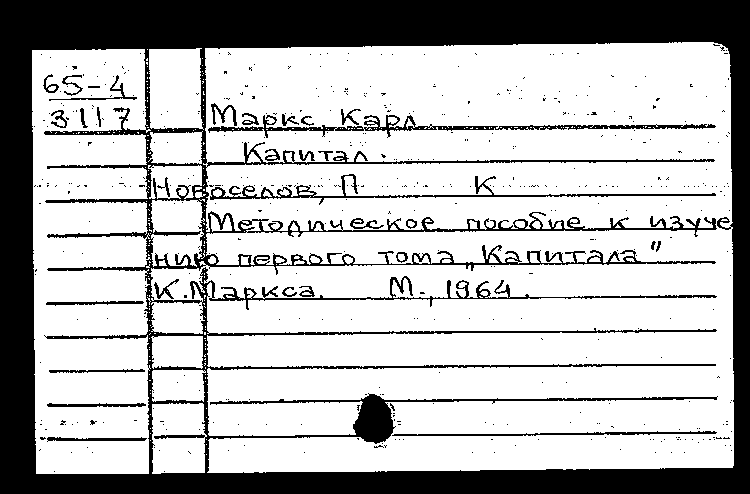 65-4
3117
Маркс, Карл
Капитал.
Новоселов, П К
Методическое пособие к изуче
нию первого тома „Капитала"
К.Маркса. М., 1964.